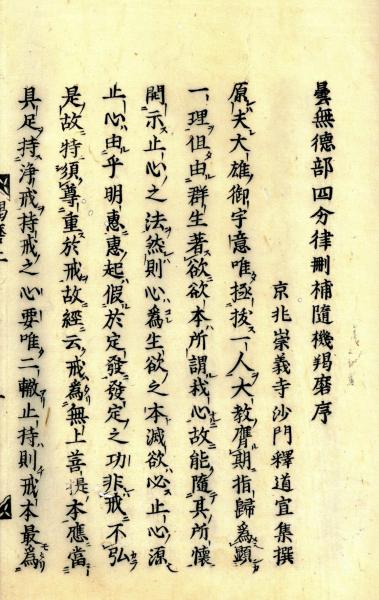 曇無德部四分律刪補隨機羯磨序
京兆崇義寺沙門釋道宣集撰
原夫大雄御宇意唯拯拔一人大教膺期指歸為顯
一理但由群生著欲欲本所謂我心故能隨其所懷
開示止心之法然則心為生欲之本滅欲必止心源
止心由乎明惠惠起假於定發發定之功非戒不弘
是故特須尊重於戒故經云戒為無上菩提本應當
具足持淨戒持戒之心要唯二轍止持則戒本最為